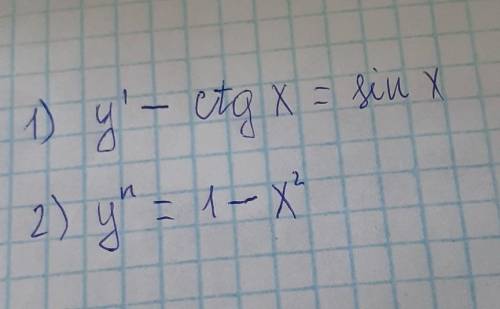 1) y' - ctg x = sin x
2) y" = 1 - x²